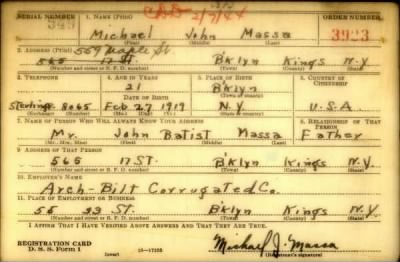 SERIAL NUMBER 1. NAME (Print) CDD 2/7/44 ORDER NUMBER
349 Michael John Massa 3923
(First) (Middle) (Last)
2. ADDRESS (Print) 559 Maple St
565 17 St. B'klyn Kings N.Y
(Number and street or R. F. D. number) (Town) (County) (State)
3. TELEPHONE 4. AGE IN YEARS 5. PLACE OF BIRTH 6. COUNTRY OF CITIZENSHIP
21 B'klyn
DATE OF BIRTH (Town or county)
Sterling 8065 Feb 27 1919 N.Y. U.S.A
(Exchange) (Number) (Mo.) (Day) (Yr.) (State or country)
7. NAME OF PERSON WHO WILL ALWAYS KNOW YOUR ADDRESS 8. RELATIONSHIP OF THAT PERSON
Mr. John Batist Massa Father
(Mr., Mrs., Miss) (First) (Middle) (Last)
9. ADDRESS OF THAT PERSON
565 17 St. B'klyn Kings N.Y
(Number and street or R. F. D. number) (Town) (County) (State)
10. EMPLOYER'S NAME
Arch-Bilt Corrugated Co.
11. PLACE OF EMPLOYMENT OR BUSINESS
55 33 St. B'klyn Kings N.Y
(Number and street or R. F. D. number) (Town) (County) (State)
I AFFIRM THAT I HAVE VERIFIED ABOVE ANSWERS AND THAT THEY ARE TRUE.
REGISTRATION CARD
D. S. S. Form 1 16—17105 Michael J. Massa
(Registrant's signature)